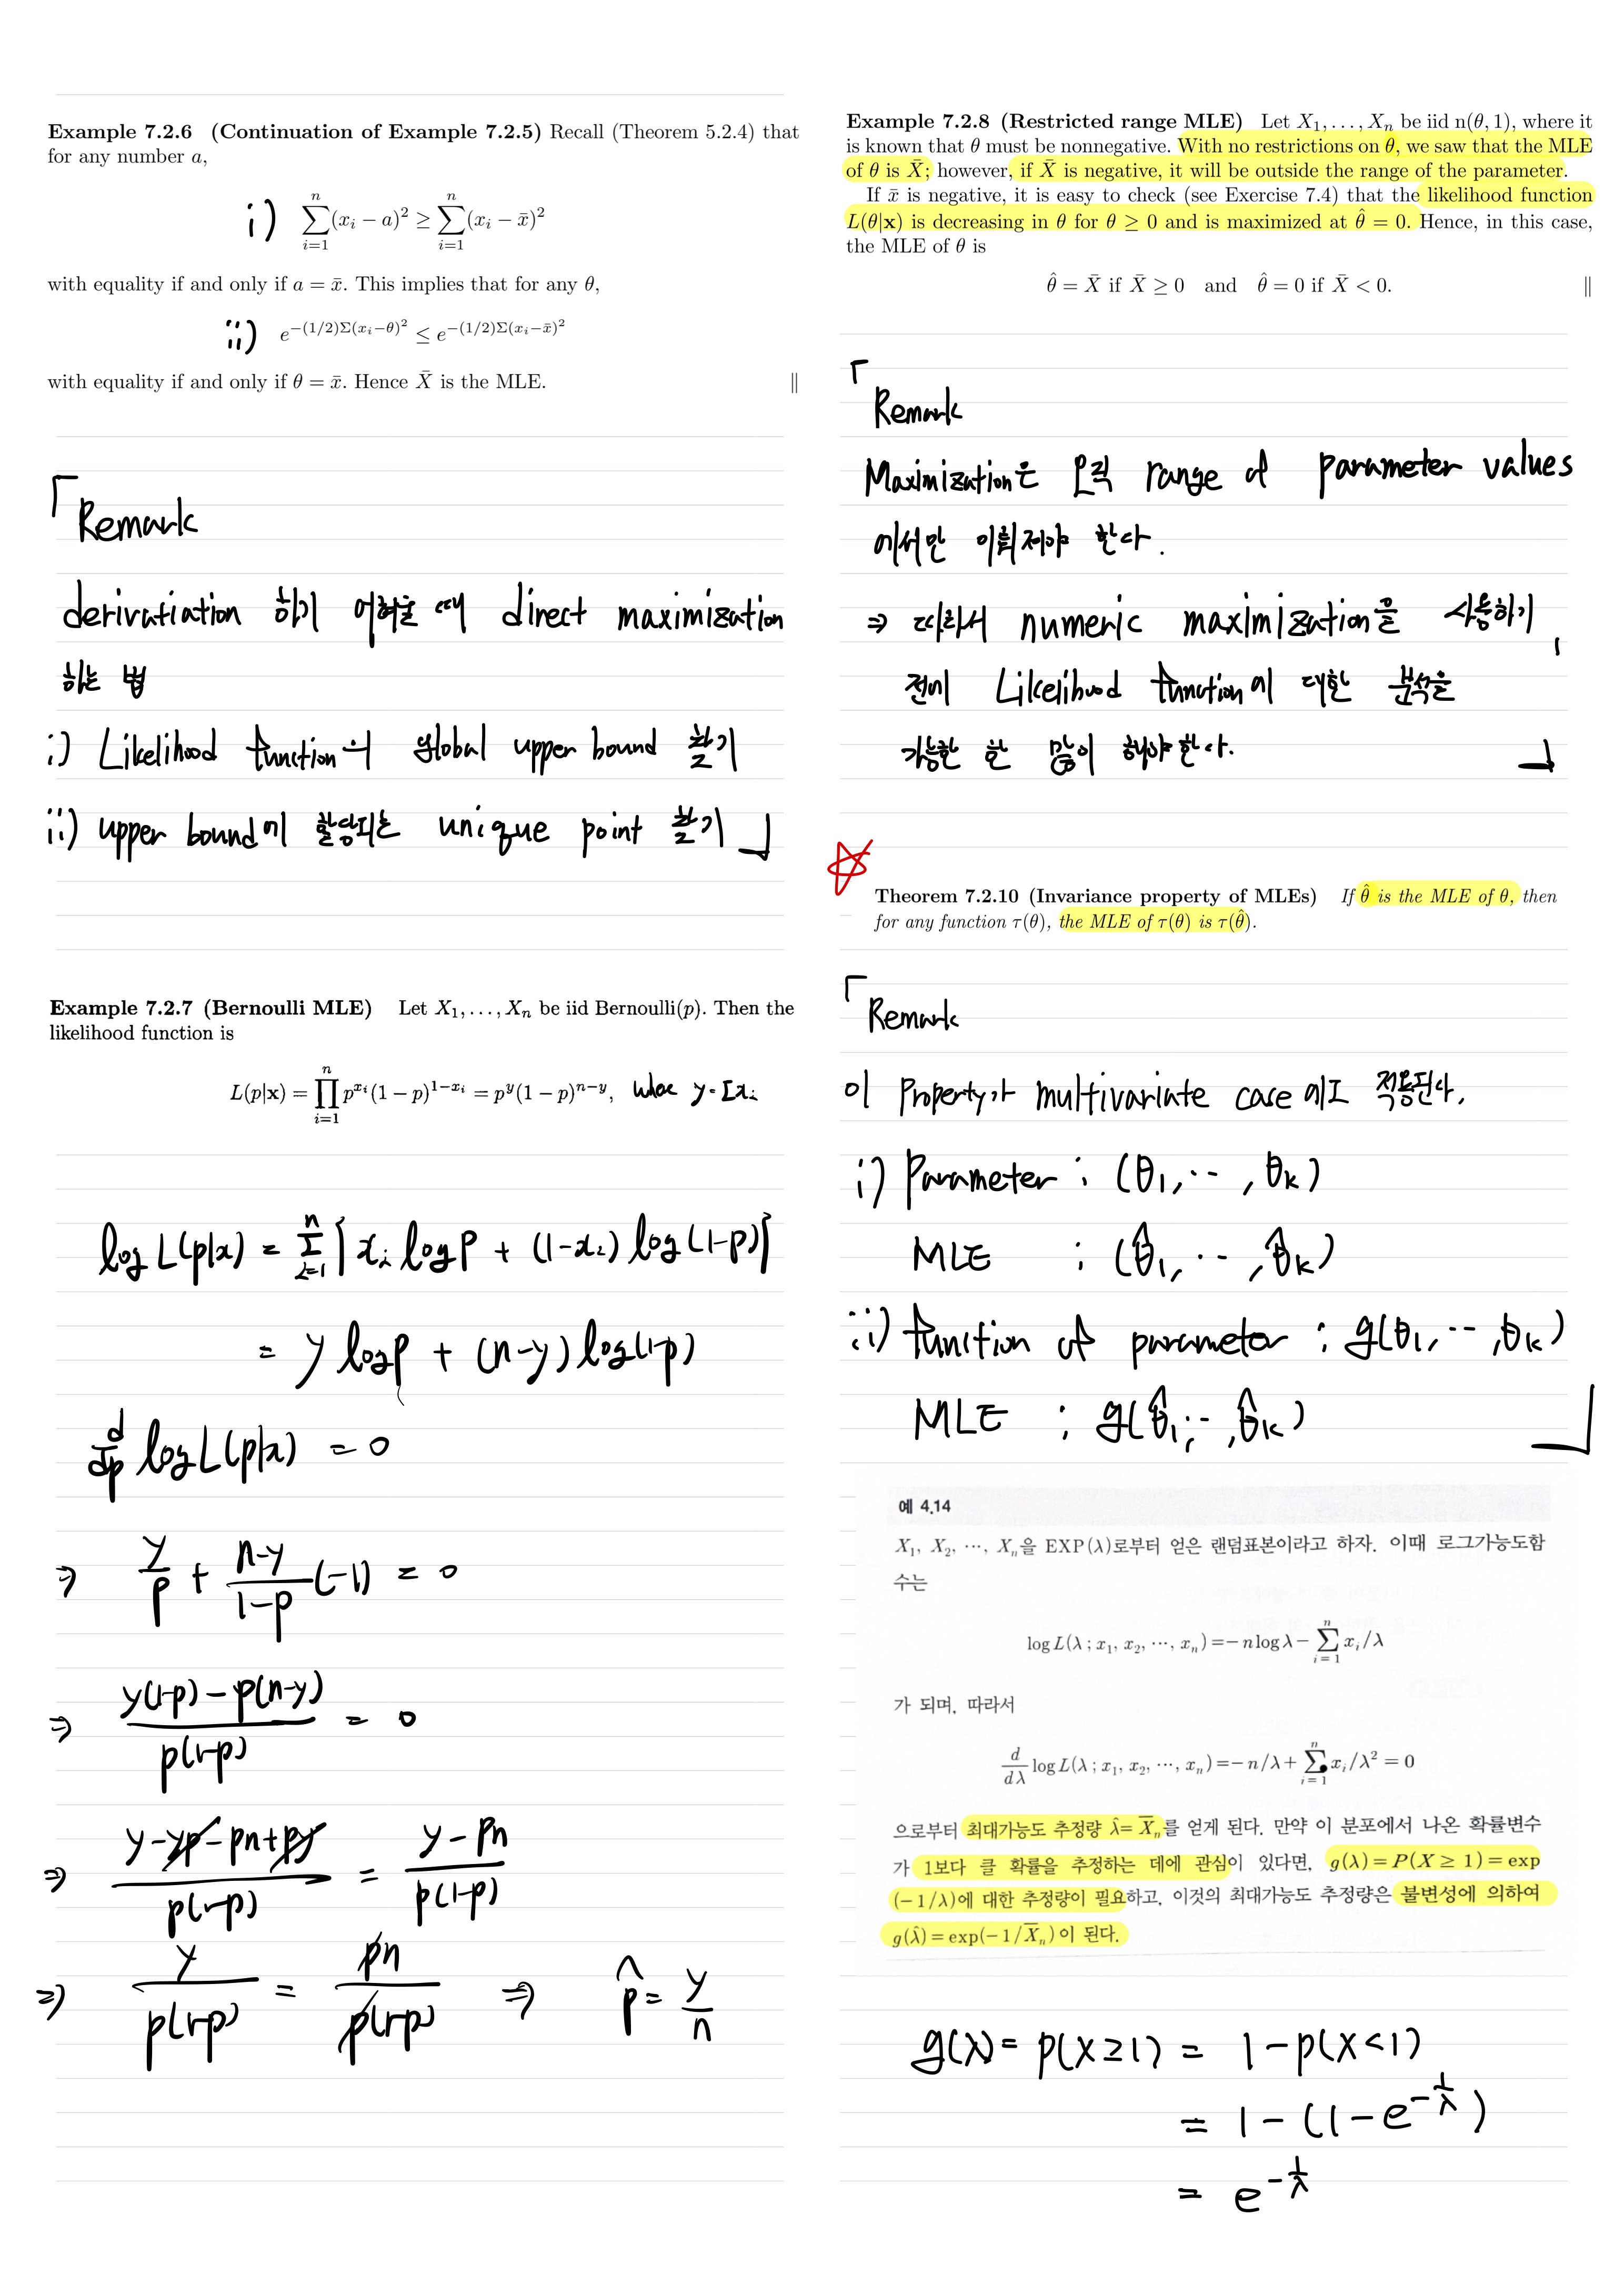 Example 7.2.6 (Continuation of Example 7.2.5) Recall (Theorem 5.2.4) that
for any number a,
i) \sum_{i=1}^{n}(x_i − a)^2 ≥ \sum_{i=1}^{n}(x_i − x̄)^2
with equality if and only if a = x̄. This implies that for any θ,
ii) e^{−(1/2)Σ(x_i−θ)^2} ≤ e^{−(1/2)Σ(x_i−x̄)^2}
with equality if and only if θ = x̄. Hence X̄ is the MLE. ‖
「Remark
derivatiation 하기 어려울 때 direct maximization
하는 법
i) Likelihood function의 global upper bound 찾기
ii) upper bound에 할당되는 unique point 찾기」
Example 7.2.7 (Bernoulli MLE) Let X_1, . . . , X_n be iid Bernoulli(p). Then the
likelihood function is
L(p|x) = \prod_{i=1}^{n} p^{x_i}(1 − p)^{1−x_i} = p^y(1 − p)^{n−y}, where y = Σx_i
log L(p|x) = \sum_{i=1}^{n} [x_i log p + (1-x_i) log(1-p)]
= y log p + (n-y) log(1-p)
\frac{d}{dp} log L(p|x) = 0
⇒ \frac{y}{p} + \frac{n-y}{1-p}(-1) = 0
⇒ \frac{y(1-p) - p(n-y)}{p(1-p)} = 0
⇒ \frac{y-yp-pn+py}{p(1-p)} = \frac{y-pn}{p(1-p)}
⇒ \frac{y}{p(1-p)} = \frac{pn}{p(1-p)} ⇒ p̂ = \frac{y}{n}
Example 7.2.8 (Restricted range MLE) Let X_1, . . . , X_n be iid n(θ, 1), where it
is known that θ must be nonnegative. With no restrictions on θ, we saw that the MLE
of θ is X̄; however, if X̄ is negative, it will be outside the range of the parameter.
If x̄ is negative, it is easy to check (see Exercise 7.4) that the likelihood function
L(θ|x) is decreasing in θ for θ ≥ 0 and is maximized at θ̂ = 0. Hence, in this case,
the MLE of θ is
θ̂ = X̄ if X̄ ≥ 0 and θ̂ = 0 if X̄ < 0. ‖
「Remark
Maximization은 오직 range of parameter values
에서만 이뤄져야 한다.
⇒ 따라서 numeric maximization을 사용하기
전에 Likelihood function에 대한 분석을
가능한 한 많이 해야한다.」
Theorem 7.2.10 (Invariance property of MLEs) If θ̂ is the MLE of θ, then
for any function τ(θ), the MLE of τ(θ) is τ(θ̂).
「Remark
이 Property가 multivariate case에도 적용된다.
i) Parameter : (θ_1, ··· , θ_k)
MLE : (θ̂_1, ··· , θ̂_k)
ii) function of parameter : g(θ_1, ··· , θ_k)
MLE : g(θ̂_1, ··· , θ̂_k)」
예 4.14
X_1, X_2, ···, X_n을 EXP(λ)로부터 얻은 랜덤표본이라고 하자. 이때 로그가능도함
수는
log L(λ ; x_1, x_2, ···, x_n) = − n log λ − \sum_{i=1}^{n} x_i/λ
가 되며, 따라서
\frac{d}{dλ} log L(λ ; x_1, x_2, ···, x_n) = − n/λ + \sum_{i=1}^{n} x_i/λ^2 = 0
으로부터 최대가능도 추정량 λ̂ = X̄_n를 얻게 된다. 만약 이 분포에서 나온 확률변수
가 1보다 클 확률을 추정하는 데에 관심이 있다면, g(λ) = P(X ≥ 1) = exp
(−1/λ)에 대한 추정량이 필요하고, 이것의 최대가능도 추정량은 불변성에 의하여
g(λ̂) = exp(−1/X̄_n)이 된다.
g(λ) = p(X ≥ 1) = 1 - p(X < 1)
= 1 - (1 - e^{-\frac{1}{λ}})
= e^{-\frac{1}{λ}}